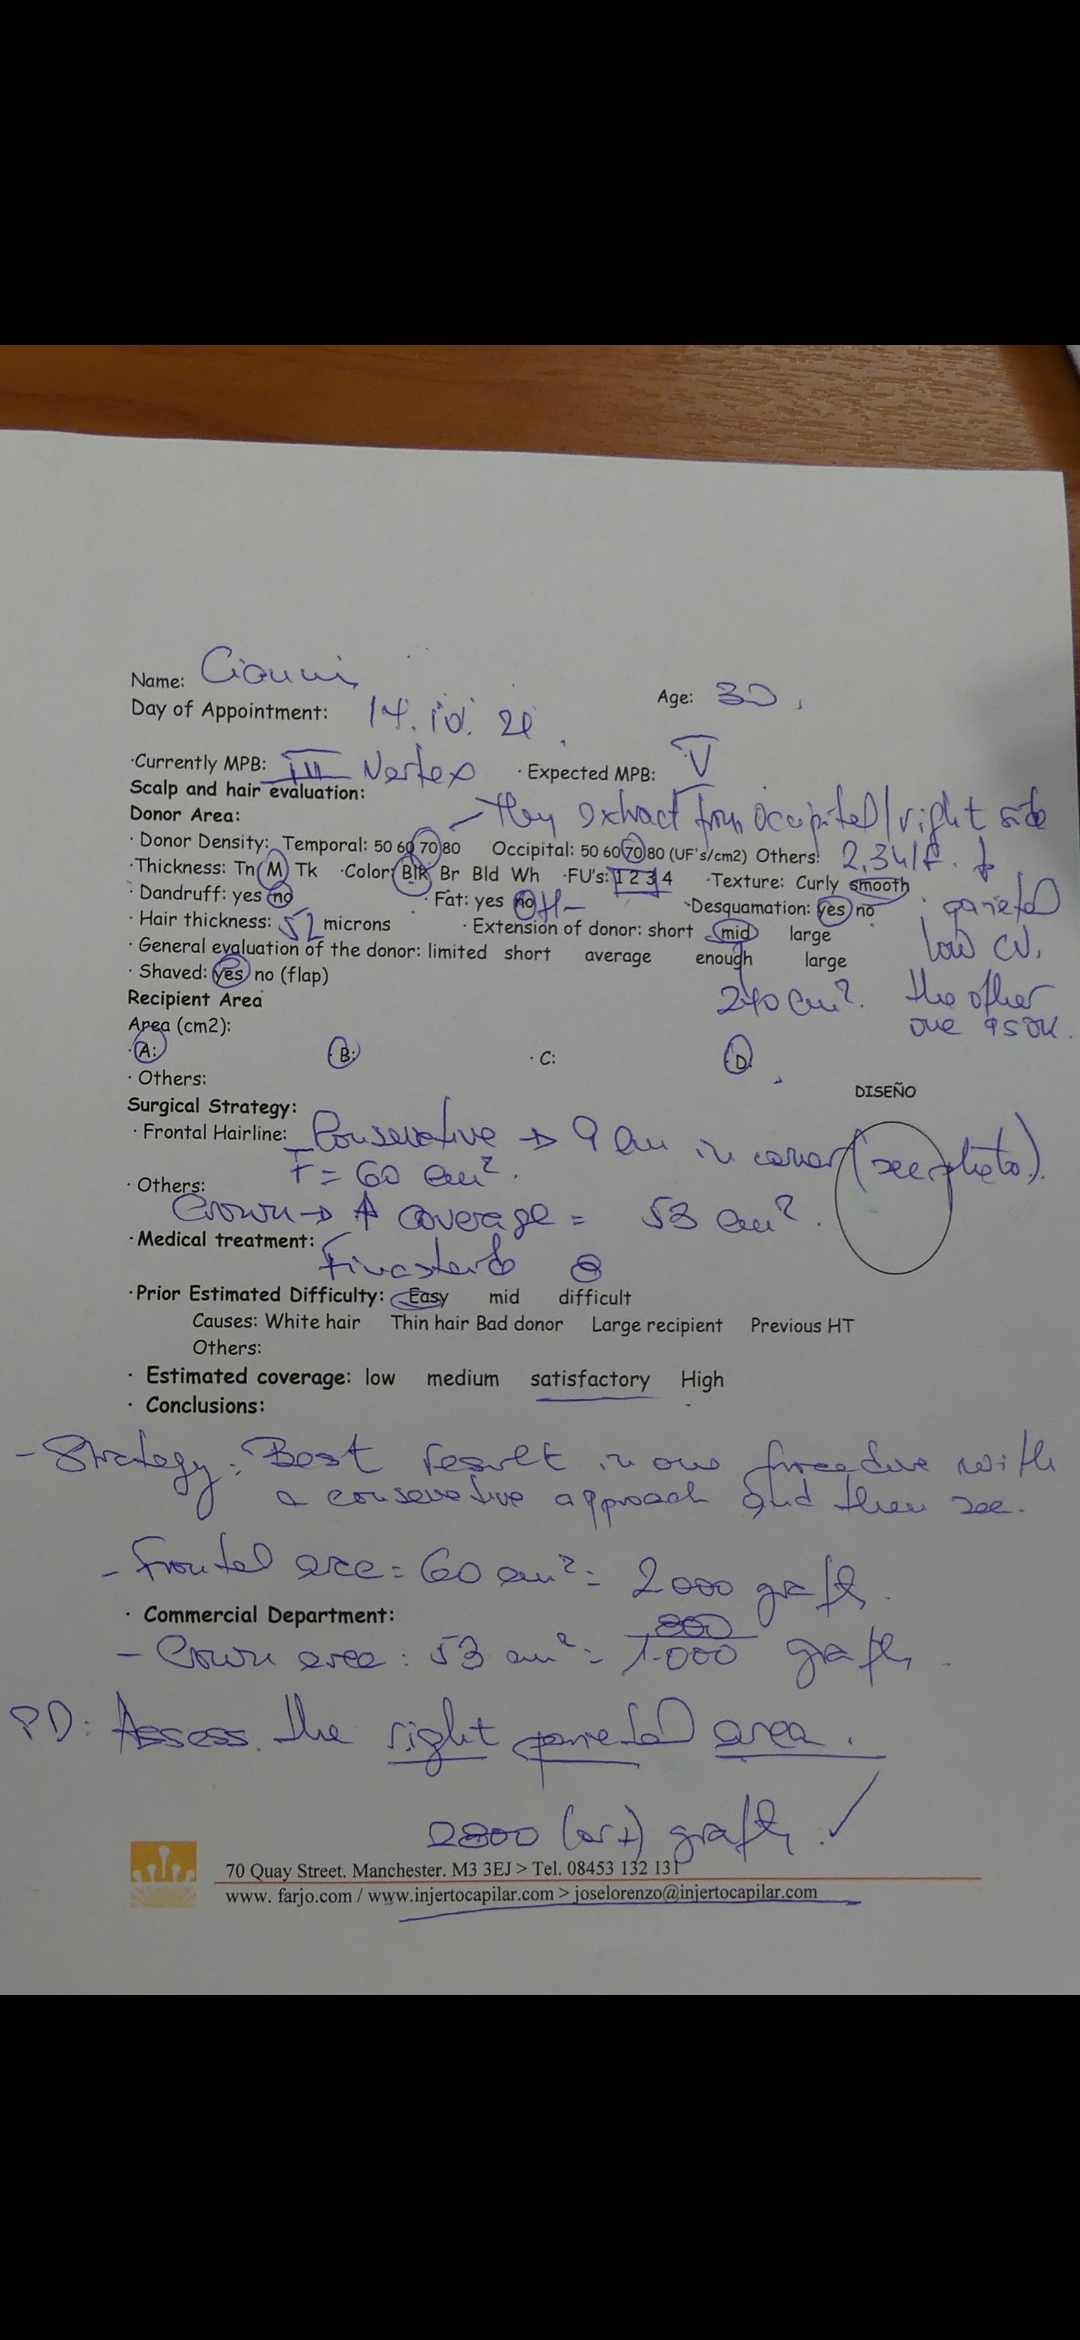 Name: Gianni
Day of Appointment: 14. Age: 30.
·Currently MPB: III Vertex · Expected MPB: V
Scalp and hair evaluation:
Donor Area: They extract from occipital/right side
· Donor Density: Temporal: 50 60 70 80 Occipital: 50 60 70 80 (UF's/cm2) Others:
·Thickness: Tn M Tk ·Color: Blk Br Bld Wh ·FU's: 1 2 3 4 ·Texture: Curly smooth
· Dandruff: yes no · Fat: yes no ·Desquamation: yes no : parietal
· Hair thickness: 52 microns · Extension of donor: short mid large low CV.
· General evaluation of the donor: limited short average enough large
· Shaved: yes no (flap) cm². the other
Recipient Area one
Area (cm2):
·A: B: · C: D:
· Others:
DISEÑO
Surgical Strategy:
· Frontal Hairline: Conservative → 9 cm in (see photo).
F = 60 cm².
· Others:
Crown → ↑ coverage = 53 cm².
·Medical treatment:
·Prior Estimated Difficulty: Easy mid difficult
Causes: White hair Thin hair Bad donor Large recipient Previous HT
Others:
· Estimated coverage: low medium satisfactory High
· Conclusions:
- Strategy: Best result in one procedure with
a conservative approach and then see.
- Frontal area = 60 cm² = 2000 grafts.
· Commercial Department: 800
- Crown area: 53 cm² = 1.000 grafts.
PD: Assess the right parietal area.
2800 (or +) grafts. ✓
70 Quay Street. Manchester. M3 3EJ > Tel. 08453 132 131
www. farjo.com / www.injertocapilar.com > joselorenzo@injertocapilar.com